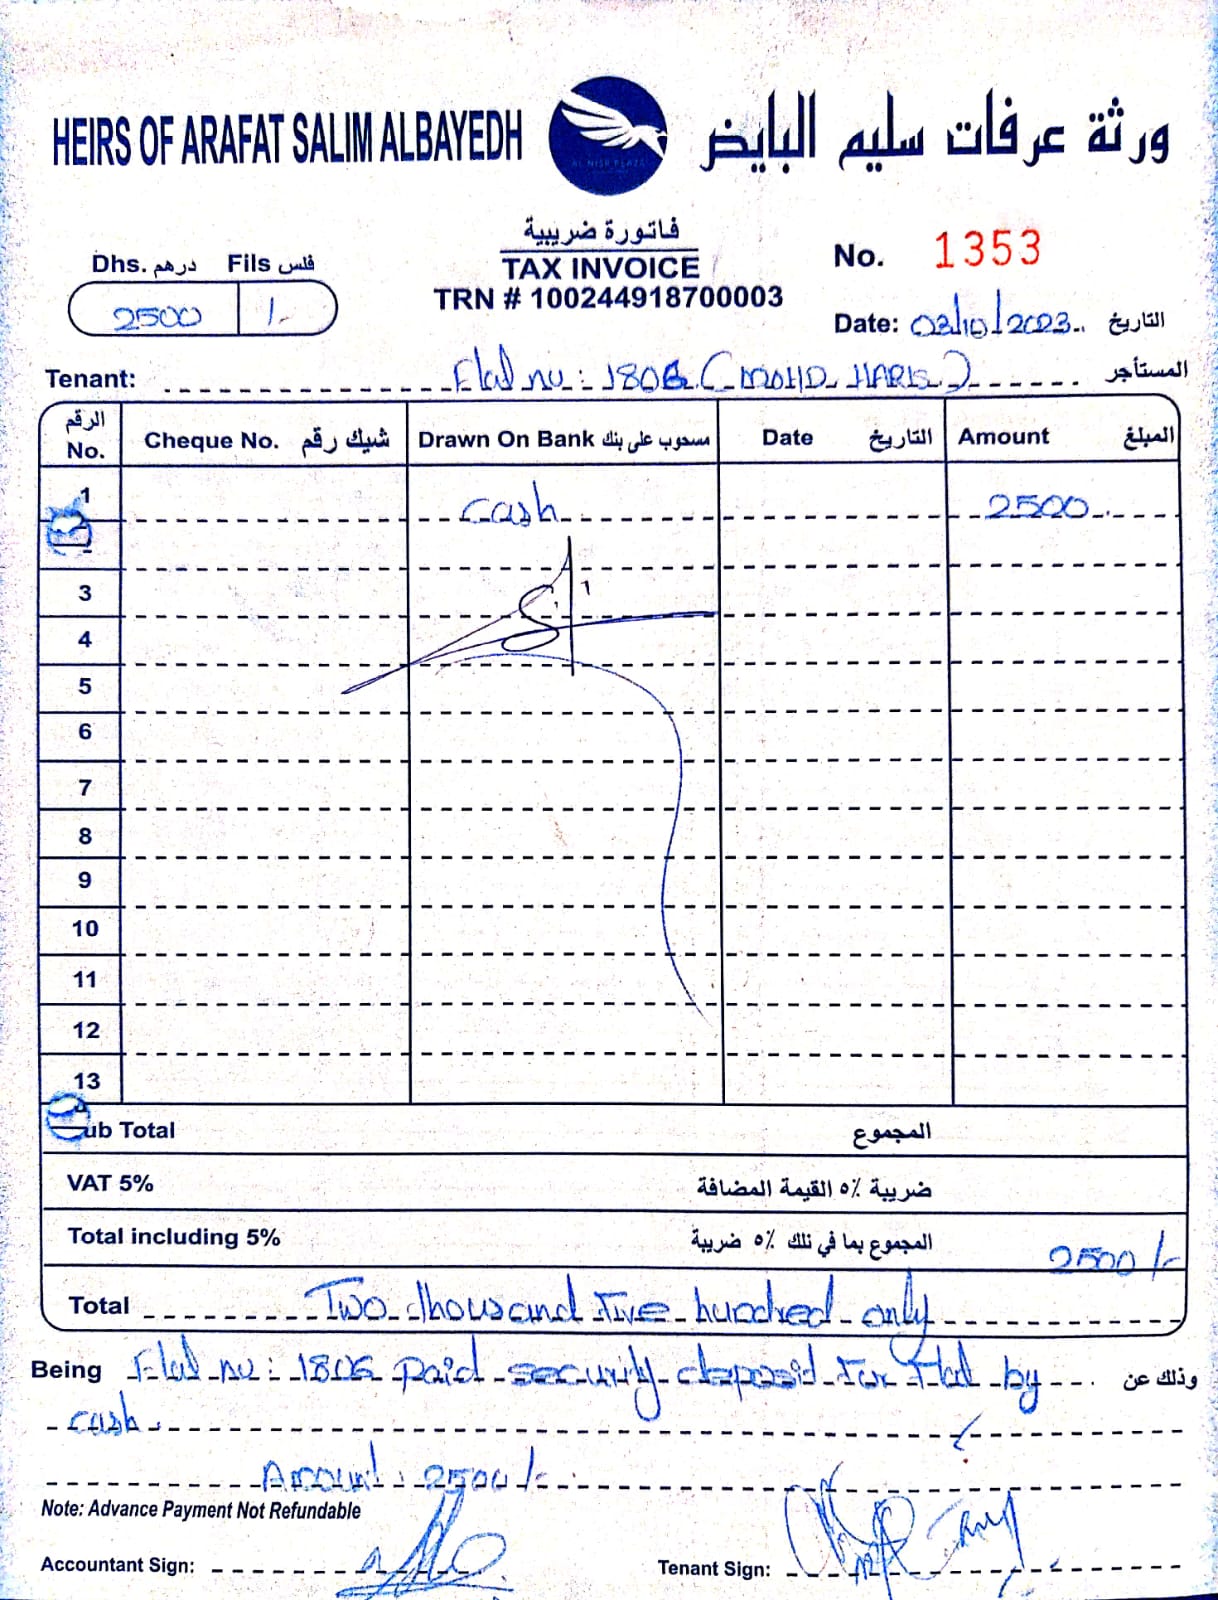 HEIRS OF ARAFAT SALIM ALBAYEDH
ورثة عرفات سليم البايض
AL NISR PLAZA
فاتورة ضريبية
TAX INVOICE
TRN # 100244918700003
Dhs. درهم Fils فلس
2500 /-
No. 1353
Date: 03/10/2023 التاريخ
Tenant: Flat no: 1806 (MOHD HARIS) المستأجر
الرقم No. Cheque No. شيك رقم Drawn On Bank مسحوب على بنك Date التاريخ Amount المبلغ
1 cash 2500
3
4
5
6
7
8
9
10
11
12
13
ub Total المجموع
VAT 5% ضريبة ٥٪ القيمة المضافة
Total including 5% المجموع بما في ذلك ٥٪ ضريبة 2500/-
Total Two thousand Five hundred only
Being Flat no: 1806 paid security deposit for Flat by وذلك عن
cash
Amount: 2500/-
Note: Advance Payment Not Refundable
Accountant Sign:
Tenant Sign: